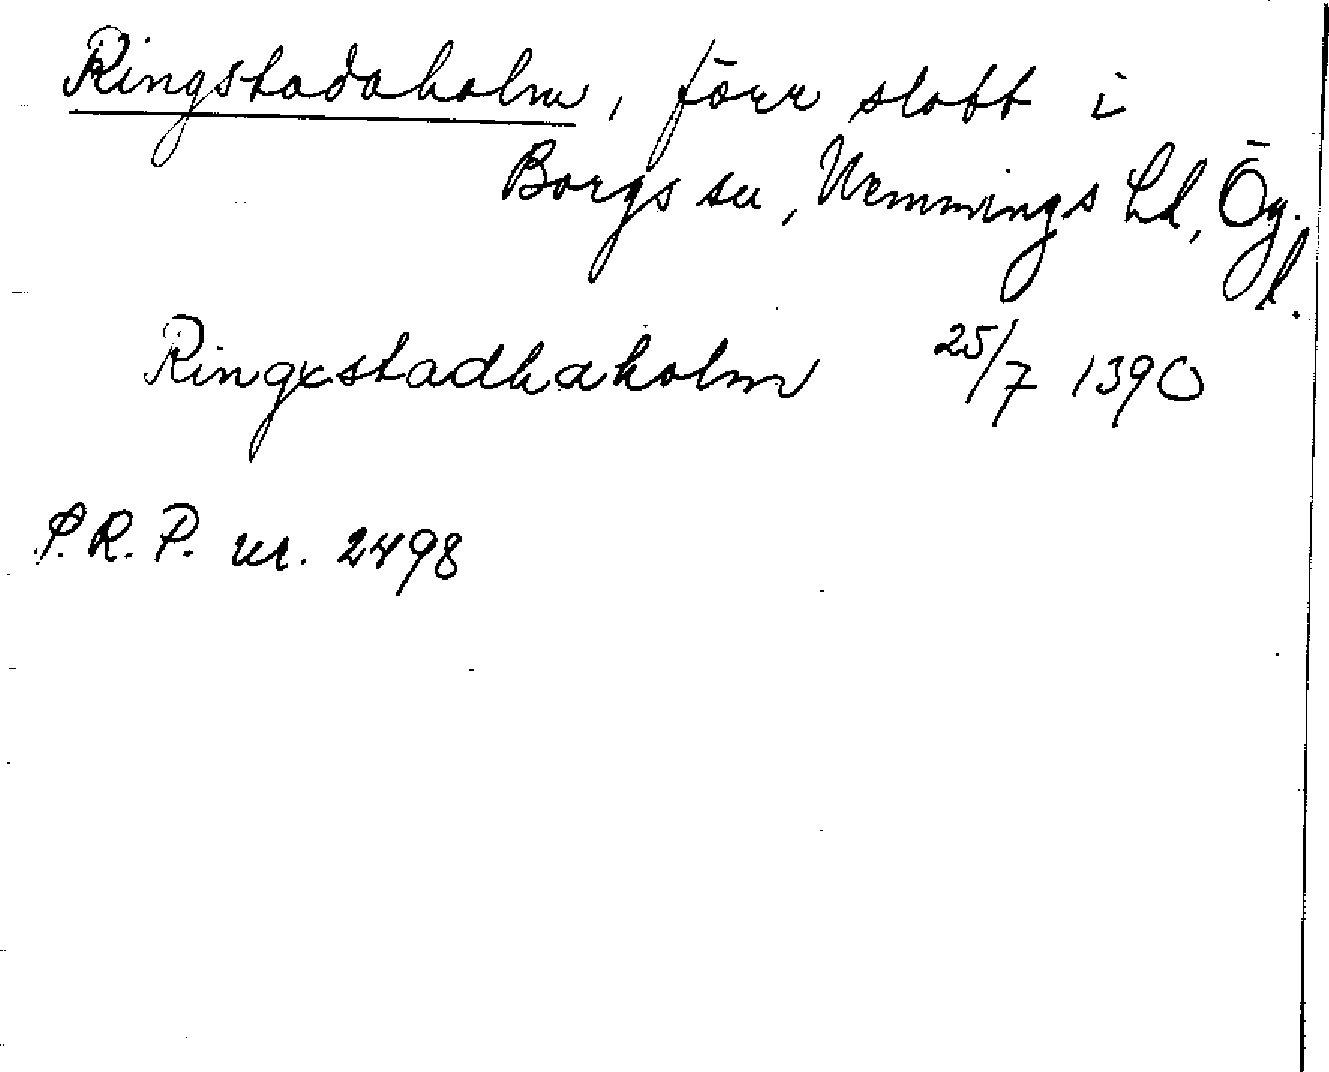 Ringstadaholm, förr slott i
Borgs sn, Memmings hd, Ög.
l.
Ringxstadhaholm 25/7 1390
S.R.P. nr. 2498